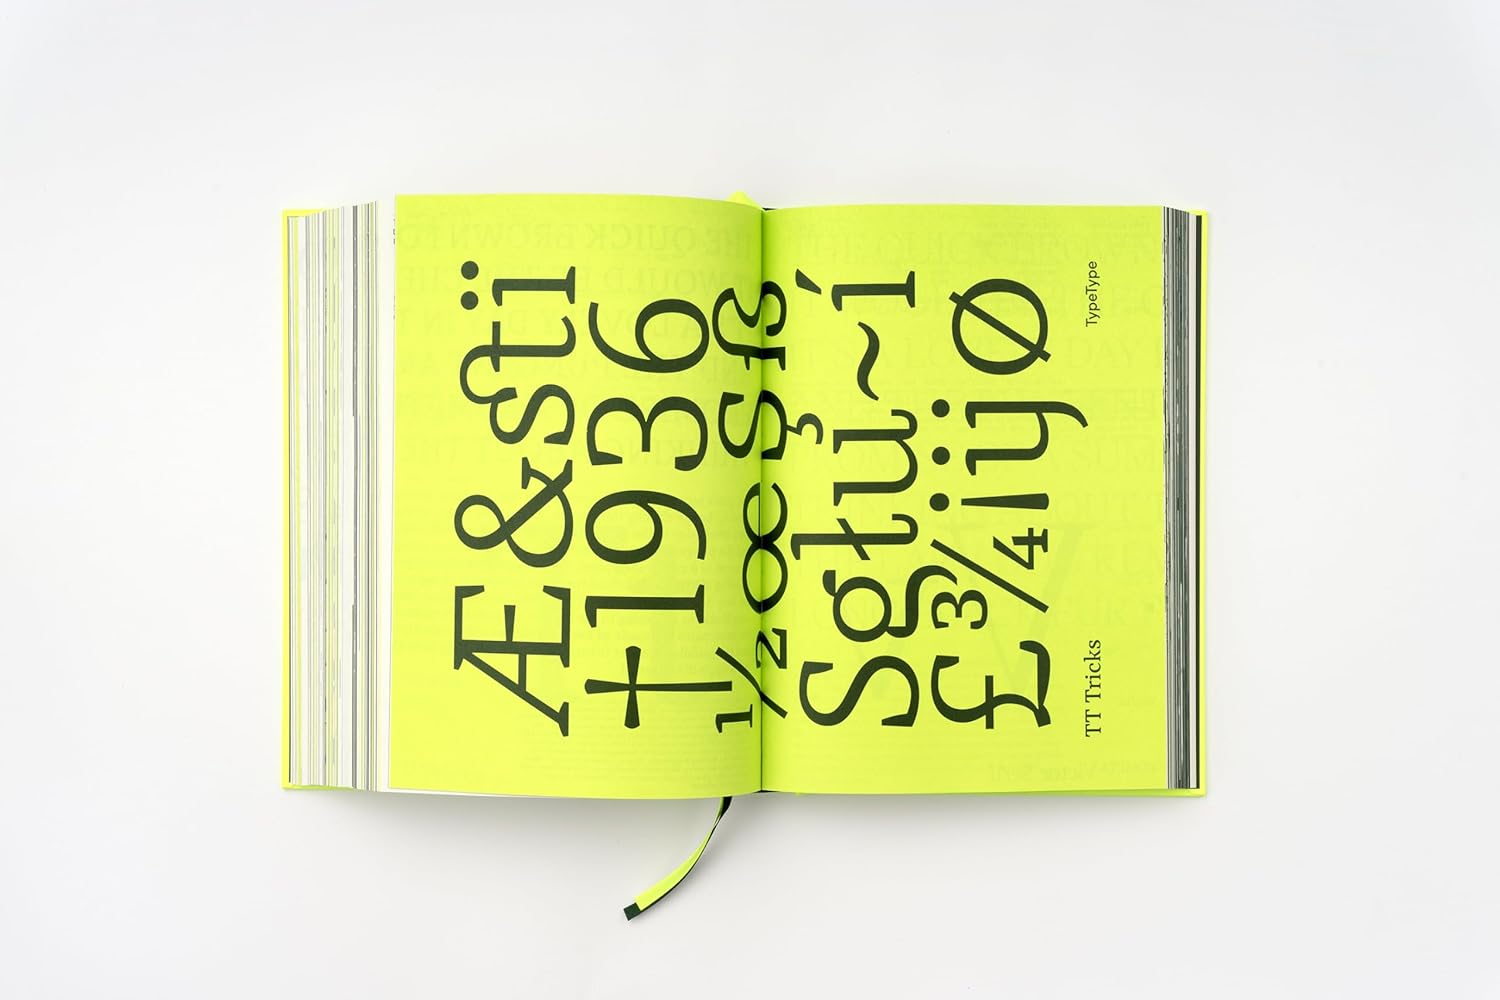 Æ&stï
†1936
½œŞß
Sgłu~í
£¾¡ÿø
TT Tricks
TypeType